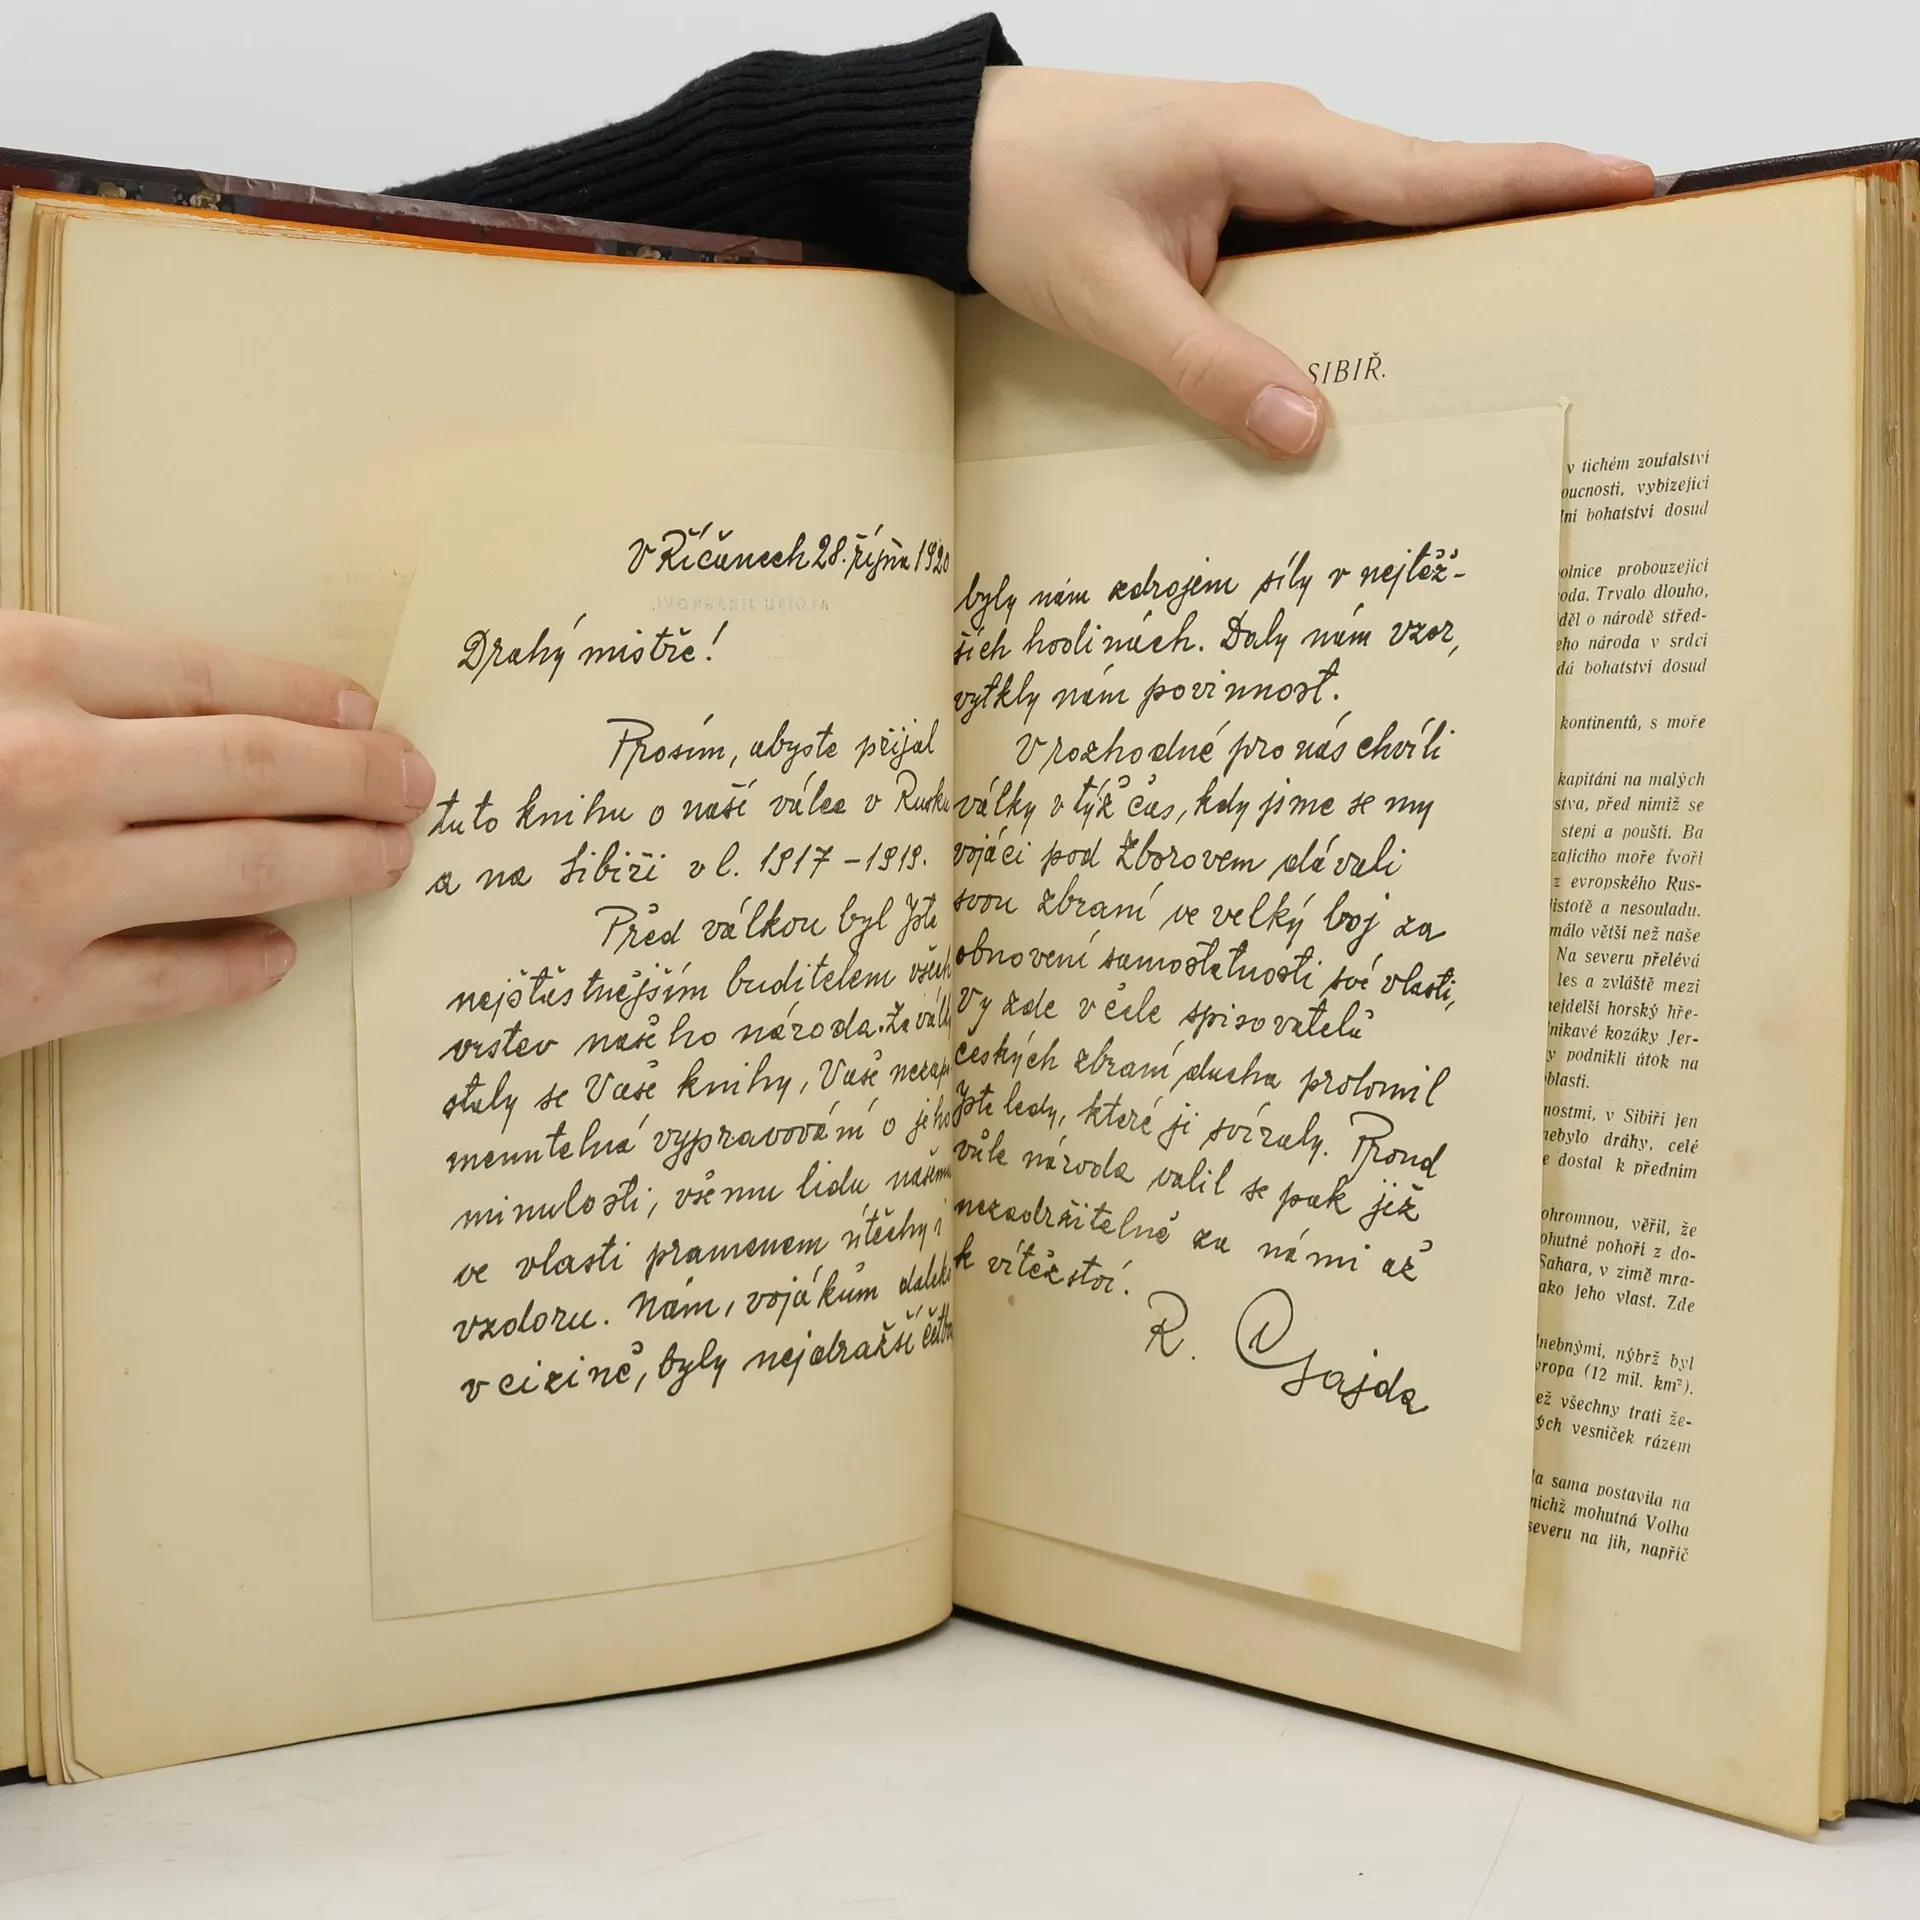 V Říčanech 28. října 1920
Drahý mistře!
Prosím, abyste přijal
tuto knihu o naší válce v Rusku
a na Sibiři v l. 1917 – 1919.
Před válkou byl Jste
nejšťastnějším buditelem všech
vrstev našeho národa. Za války
staly se Vaše knihy, Vaše nezapo-
menutelná vypravování o jeho
minulosti, všemu lidu našemu
ve vlasti pramenem útěchy i
vzdoru. Nám, vojákům daleko
v cizině, byly nejdražší četbou,
byly nám zdrojem síly v nejtěž-
ších hodinách. Daly nám vzor,
vytkly nám povinnost.
V rozhodné pro nás chvíli
války v týž čas, kdy jsme se my
vojáci pod Zborovem dávali
svou zbraní ve velký boj za
obnovení samostatnosti své vlasti,
Vy zde v čele spisovatelů
českých zbraní ducha prolomil
Jste ledy, které ji svíraly. Proud
vůle národa valil se pak již
nezadržitelně za námi až
k vítězství.
R. Gajda
SIBIŘ.
v tichém zoufalství
oucnosti, vybízející
lní bohatství dosud
olnice probouzející
oda. Trvalo dlouho,
děl o národě střed-
eho národa v srdci
dá bohatství dosud
kontinentů, s moře
kapitáni na malých
stva, před nimiž se
stepí a pouští. Ba
zajícího moře tvoří
z evropského Rus-
jistotě a nesouladu.
málo větší než naše
Na severu přelévá
les a zvláště mezi
nejdelší horský hře-
nikavé kozáky Jer-
y podnikli útok na
oblasti.
nostmi, v Sibiři jen
nebylo dráhy, celé
e dostal k předním
ohromnou, věřil, že
ohutné pohoří z do-
Sahara, v zimě mra-
ako jeho vlast. Zde
dnebnými, nýbrž byl
vropa (12 mil. km²).
ež všechny trati že-
ých vesniček rázem
la sama postavila na
nichž mohutná Volha
severu na jih, napříč